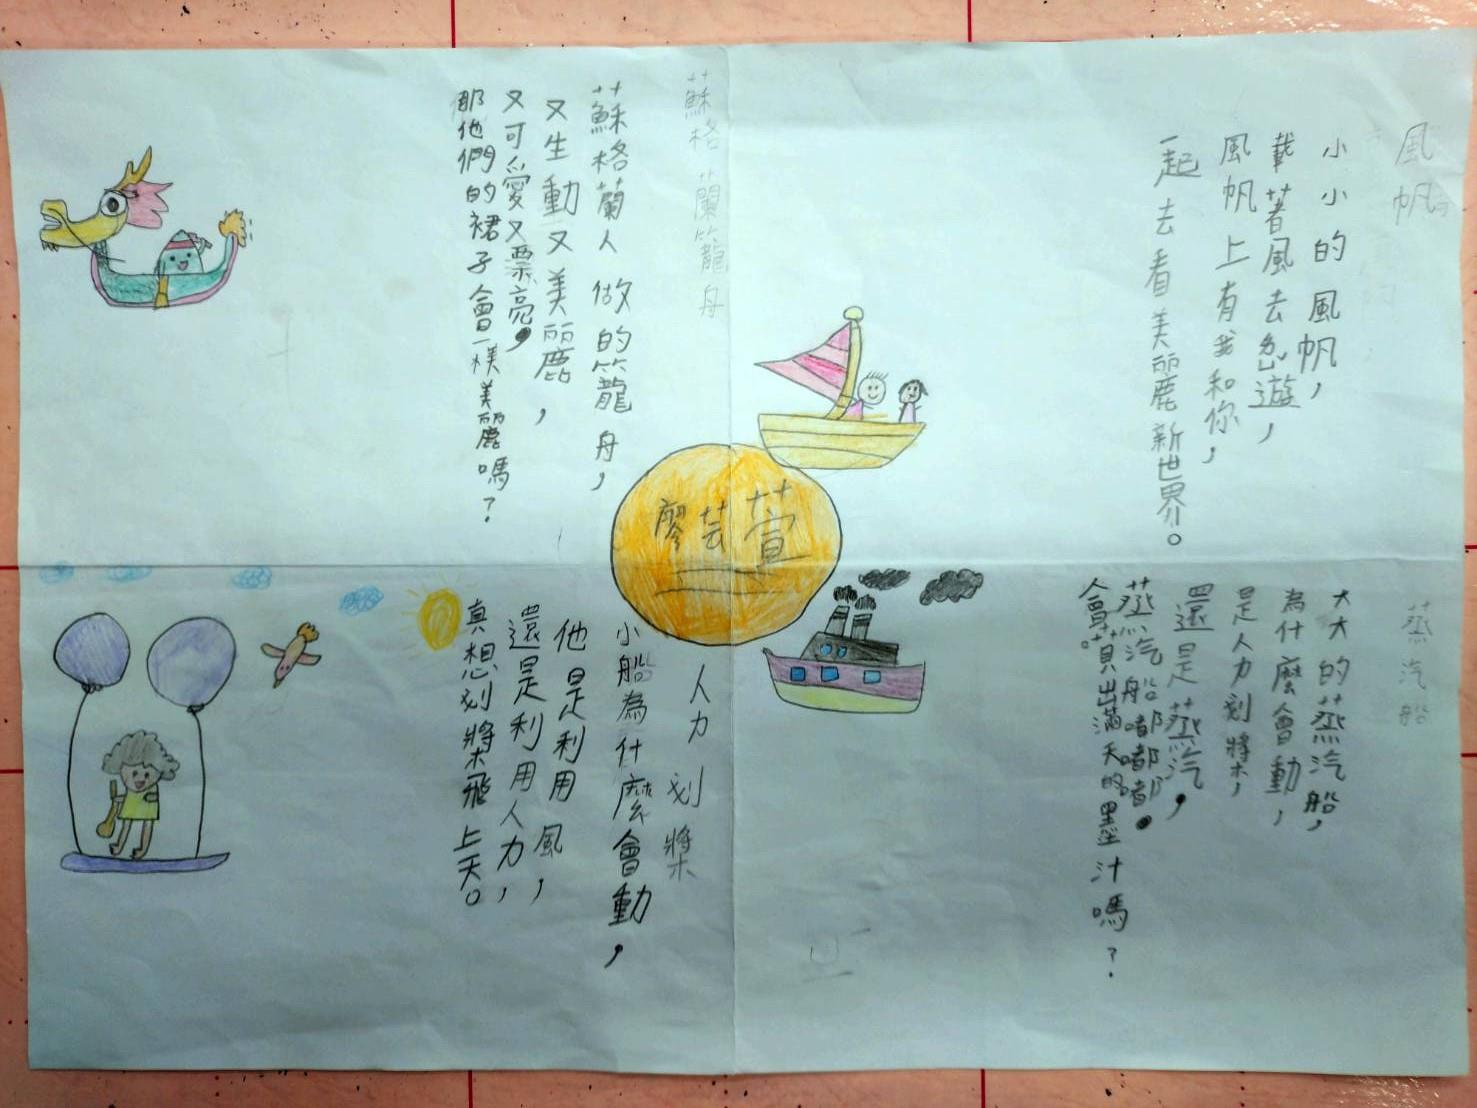 風帆
小小的風帆，
載著風去忽遊，
風帆上有我和你，
一起去看美麗新世界。
蘇格蘭籠舟
蘇格蘭人做的籠舟，
又生動又美麗，
又可愛又票亮，
那他們的裙子會一樣美麗嗎？
廖芸萱
蒸汽船
大大的蒸汽船，
為什麼會動，
是人力划槳，
還是蒸汽，
蒸汽船嘟嘟嘟。
會噴出滿天的墨汁嗎？
人力划槳
小船為什麼會動，
他是利用風，
還是利用人力，
真想划槳飛上天。